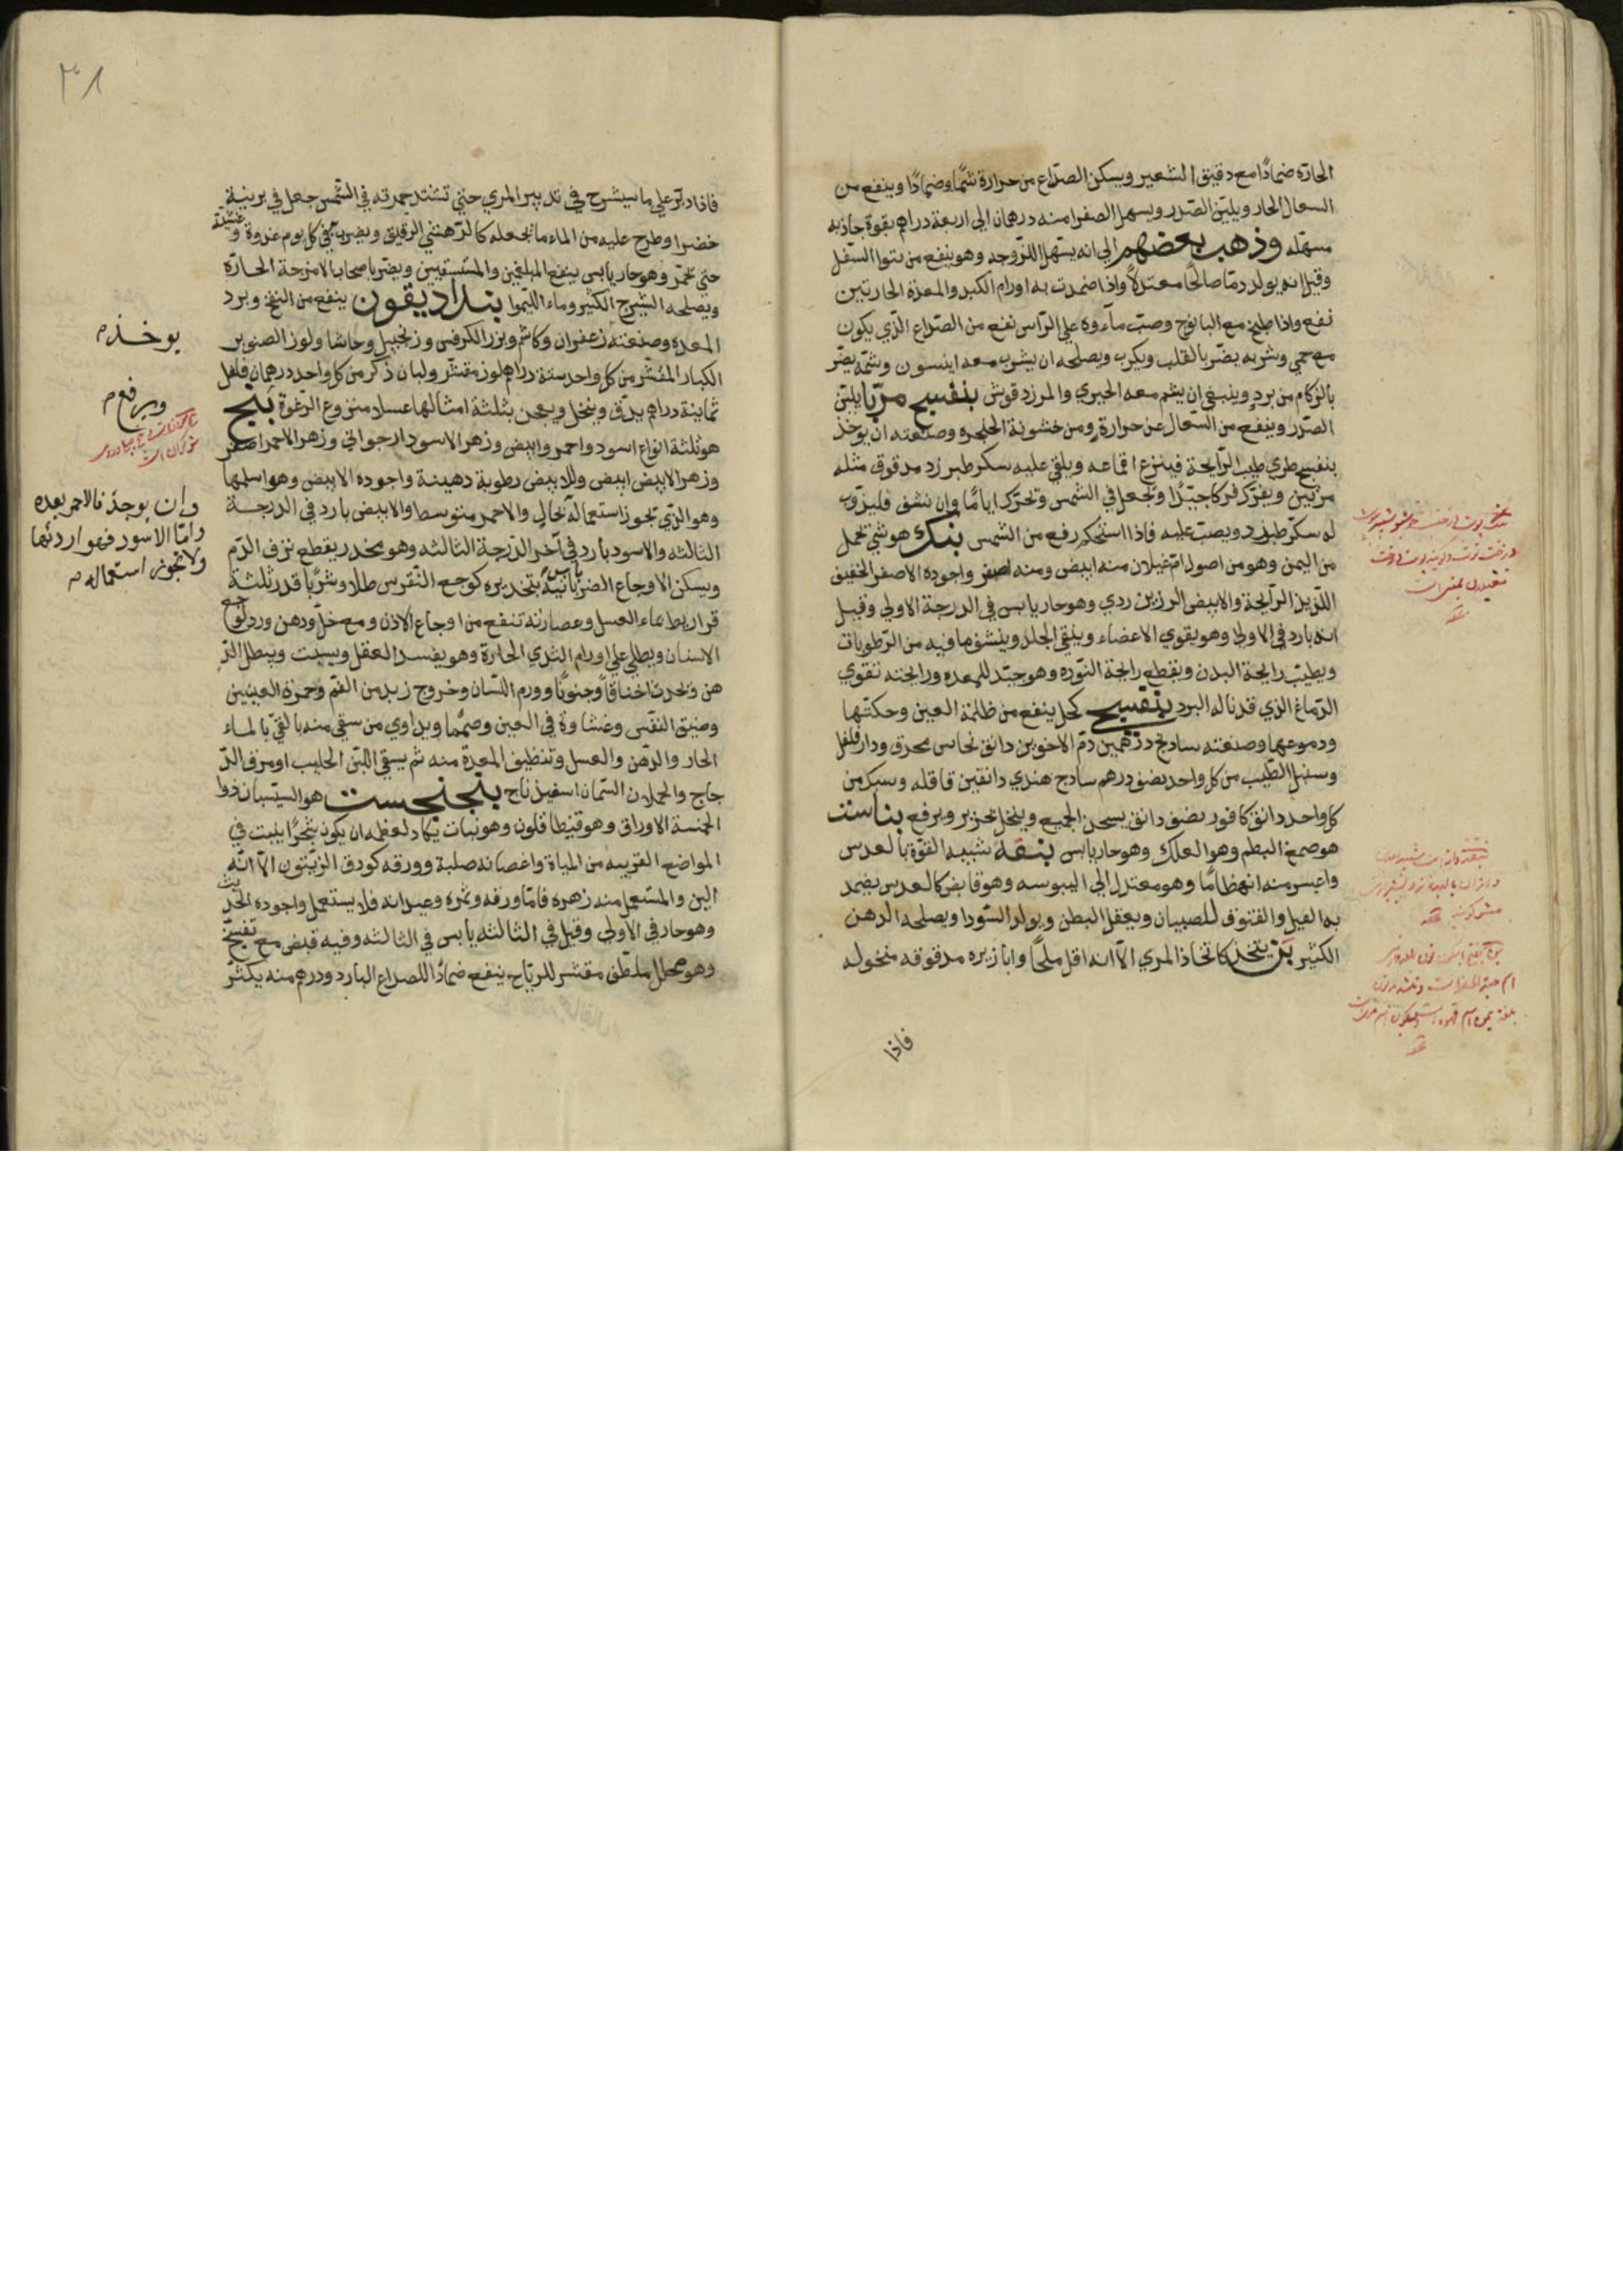 الحارّة ضمادًا مع دقيق الشعير ويسكن الصداع من حرارة شمًّا وضمادًا وينفع من
السعال الحار ويلين الصّدر ويسهل الصفرا منه درهمان الي اربعة دراهم بقوة جاذبه
مسهله وذهب بعضهم الي انه يسهل اللزوجه وهو ينفع من نتوا السفل
وقيل انه يولد دمًا صالحًا معتدلًا واذا ضمدت به اورام الكبد والمعدة الحارتين
نفع واذا طبخ مع البابونج وصبّ ماءوه علي الرّاس نفع من الصّداع الذي يكون
مع حمي وشربه يضرّ بالقلب ويكرب ويصلحه ان يشرب معه اينسون وشمّه يضرّ
بالزكام من برد وينبغي ان يشم معه الخيري والمرزدقوش بنفسج مربّا يلين
الصّدر وينفع من السّعال عن حرارة ومن خشونة الحلجره وصنعته ان يوخذ
بنفسج طري طيب الرّايحة فينزع اقماعه ويلقي عليه سكر طبرزد مدقوق مثله
مرتين ويفرّك فركا جيّدًا وتجعل في الشمس وتحرّك ايامًا وان نشف فليذوب
له سكر طبرزد ويصب عليه فاذا استحكم رفع من الشمس بنك هو شي يحمل
من اليمن وهو من اصول امّ غيلان منه ابيض ومنه اصفر واجوده الاصفر الخفيف
اللذيذ الرّايحة والابيض الرزين ردي وهو حار يابس في الدرجة الاولي وقيل
انه بارد في الاولي وهو يقوي الاعضاء وينقي الجلد وينشف ما فيه من الرّطوبات
ويطيّب رايحة البدن ويقطع رايحة النوره وهو جيّد للمعده ورايحته تقوي
الدّماغ الذي قد ناله البرد بنفسج كحل ينفع من ظلمة العين وحكتها
ودموعها وصنعته سادنج درهمين دم الاخوين دانق نحاس محرق ودارفلفل
وسنبل الطّيب من كل واحد نصف درهم سادج هندي دانقين قاقله وسبك من
كل واحد دانق كافور نصف دانق يسحق الجميع وينخل بحرير ويرفع بناست
هو صمغ البطم وهو العلك وهو حار يابس بنقه شبيه القوّة بالعدس
واعسر منه انهظامًا وهو معتدل الي اليبوسه وهو قابض كالعدس يضمد
به الفيل والفتوق للصبيان ويعقل البطن ويولد السّودا ويصلحه الدهن
الكثير بن يتخذ كاتخاذ المري الّا انه اقل ملحًا وابازيره مدقوقه منخوله
فاذا
٣٨
فاذا دبّر علي ما سيشرح في تدبير المري حتي تشتد حمرته في الشّمس جعل في برنية
خضرا وطرح عليه من الماء ما يجعله كالدّهني الرقيق ويضرب في كل يوم غدوة وعشيّة
حتي تخمّر وهو حار يابس ينفع المبلغمين والمستسقيين ويضرّ باصحاب الامزجة الحارّة
ويصلحه الشيرج الكثير وماء الليّموا بنداديقون ينفع من النفخ وبرد
المعده وصنعته زعفران وكاشم وبزر الكرفس وزنجبيل وحاشا ولوز الصنوبر
الكبار المقشّر من كل واحد ستة دراهم لوز مقشر ولبان ذكر من كل واحد درهمان فلفل
ثمانية دراهم يدق وينخل ويعجن بثلثة امثالها عسلا منزوع الرّغوة بنج
هو ثلثة انواع اسود واحمر وابيض وزهر الاسود ارجواني وزهر الاحمر اصفر
وزهر الابيض ابيض وللابيض رطوبة دهينة واجوده الابيض وهو اسلمها
وهو الذي تجوز استعماله بحال والاحمر متوسط والابيض بارد في الدرجة
الثالثه والاسود بارد في آخر الدّرجة الثالثه وهو مخدر يقطع نزف الدّم
ويسكن الاوجاع الضربانيّة بتخديره كوجع النقرس طلا وشربًا قدر ثلثة
قراريط بماء العسل وعصارته تنفع من اوجاع الاذن ومع خلّ ودهن ورد لوجع
الاسنان ويطلي علي اورام الثدي الحارّة وهو يفسد العقل ويسبت ويبطل الذّ
هن وتحدث اخناقا وجنونًا وورم اللسان وخروج زبد من الفم وحمرة العينين
وضيق النفس وغشاوة في العين وصممًا ويداوي من سقي منه بالقي بالماء
الحار والدّهن والعسل وتنظيف المعدّة منه ثم يسقي اللبن الحليب او مرق الدّ
جاج والحملان السّمان اسفيذناج بنجنجست هو السيسبان ذوا
الخمسة الاوراق وهو قنيطافلون وهو نبات يكاد لعظمه ان يكون شجرًا ينبت في
المواضع القريبة من المياة واغصانه صلبة وورقه كورق الزيتون الّا انّه
الين والمستعمل منه زهره فامّا ورقه وثمره وعيدانه فلا يستعمل واجوده الحديث
وهو حار في الاولي وقيل في الثالثه يابس في الثالثه وفيه قبض مع تفتيح
وهو محلل ملطف مقشر للرياح ينفع ضمادًا للصداع البارد ودرهم منه يكثر
يوخذ م
ويرفع م
وان يوجد فالاحمر بعده
وامّا الاسود فهو اردئها
ولا تجوز استعماله م